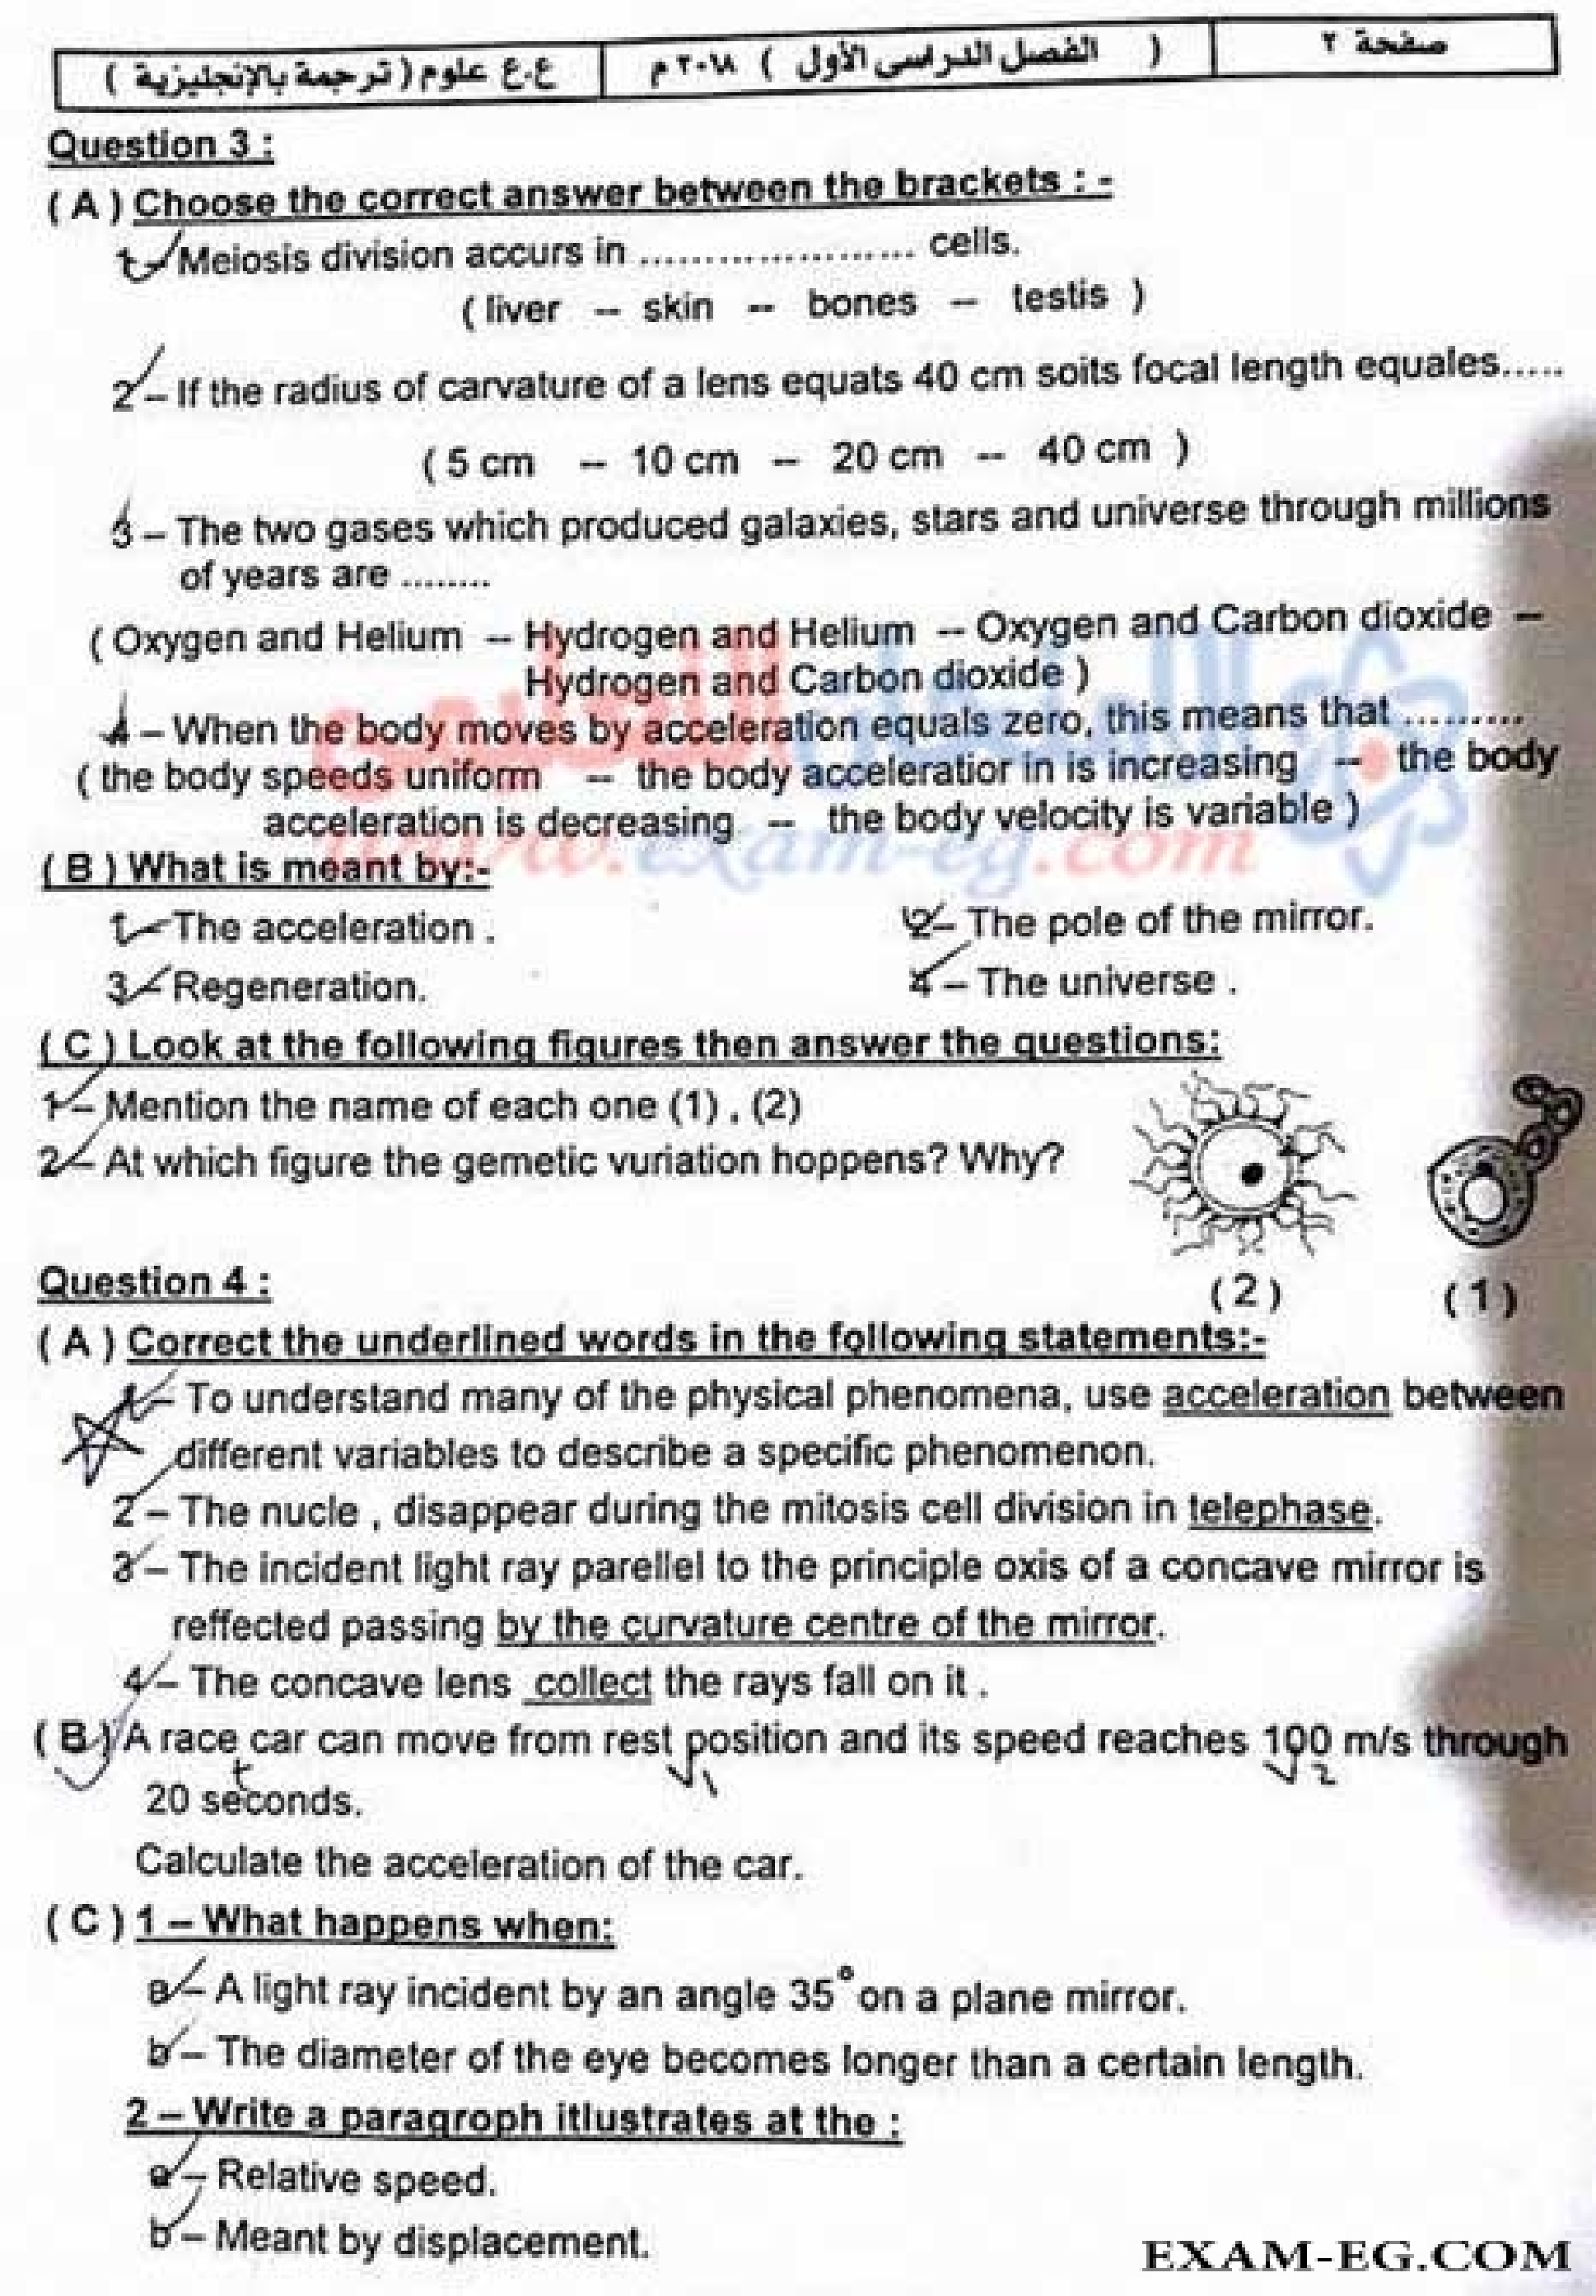 صفحة ٢
( الفصل الدراسى الأول ) ٢٠١٨ م
ع.ع علوم ( ترجمة بالإنجليزية )
Question 3 :
( A ) Choose the correct answer between the brackets : -
1 – Meiosis division accurs in ..................... cells.
( liver -- skin -- bones -- testis )
2 – If the radius of carvature of a lens equats 40 cm soits focal length equales.....
( 5 cm -- 10 cm -- 20 cm -- 40 cm )
3 – The two gases which produced galaxies, stars and universe through millions
of years are ........
( Oxygen and Helium -- Hydrogen and Helium -- Oxygen and Carbon dioxide --
Hydrogen and Carbon dioxide )
4 – When the body moves by acceleration equals zero, this means that .........
( the body speeds uniform -- the body acceleratior in is increasing -- the body
acceleration is decreasing -- the body velocity is variable )
www.exam-eg.com
( B ) What is meant by:-
1 – The acceleration .
2 – The pole of the mirror.
3 – Regeneration.
4 – The universe .
( C ) Look at the following figures then answer the questions:
1 – Mention the name of each one (1) , (2)
2 – At which figure the gemetic vuriation hoppens? Why?
( 2 ) ( 1 )
Question 4 :
( A ) Correct the underlined words in the following statements:-
1 – To understand many of the physical phenomena, use acceleration between
different variables to describe a specific phenomenon.
2 – The nucle , disappear during the mitosis cell division in telephase.
3 – The incident light ray parellel to the principle oxis of a concave mirror is
reffected passing by the curvature centre of the mirror.
4 – The concave lens collect the rays fall on it .
( B ) A race car can move from rest position and its speed reaches 100 m/s through
20 seconds.
Calculate the acceleration of the car.
( C ) 1 – What happens when:
a – A light ray incident by an angle 35° on a plane mirror.
b – The diameter of the eye becomes longer than a certain length.
2 – Write a paragroph itlustrates at the :
a – Relative speed.
b – Meant by displacement.
EXAM-EG.COM